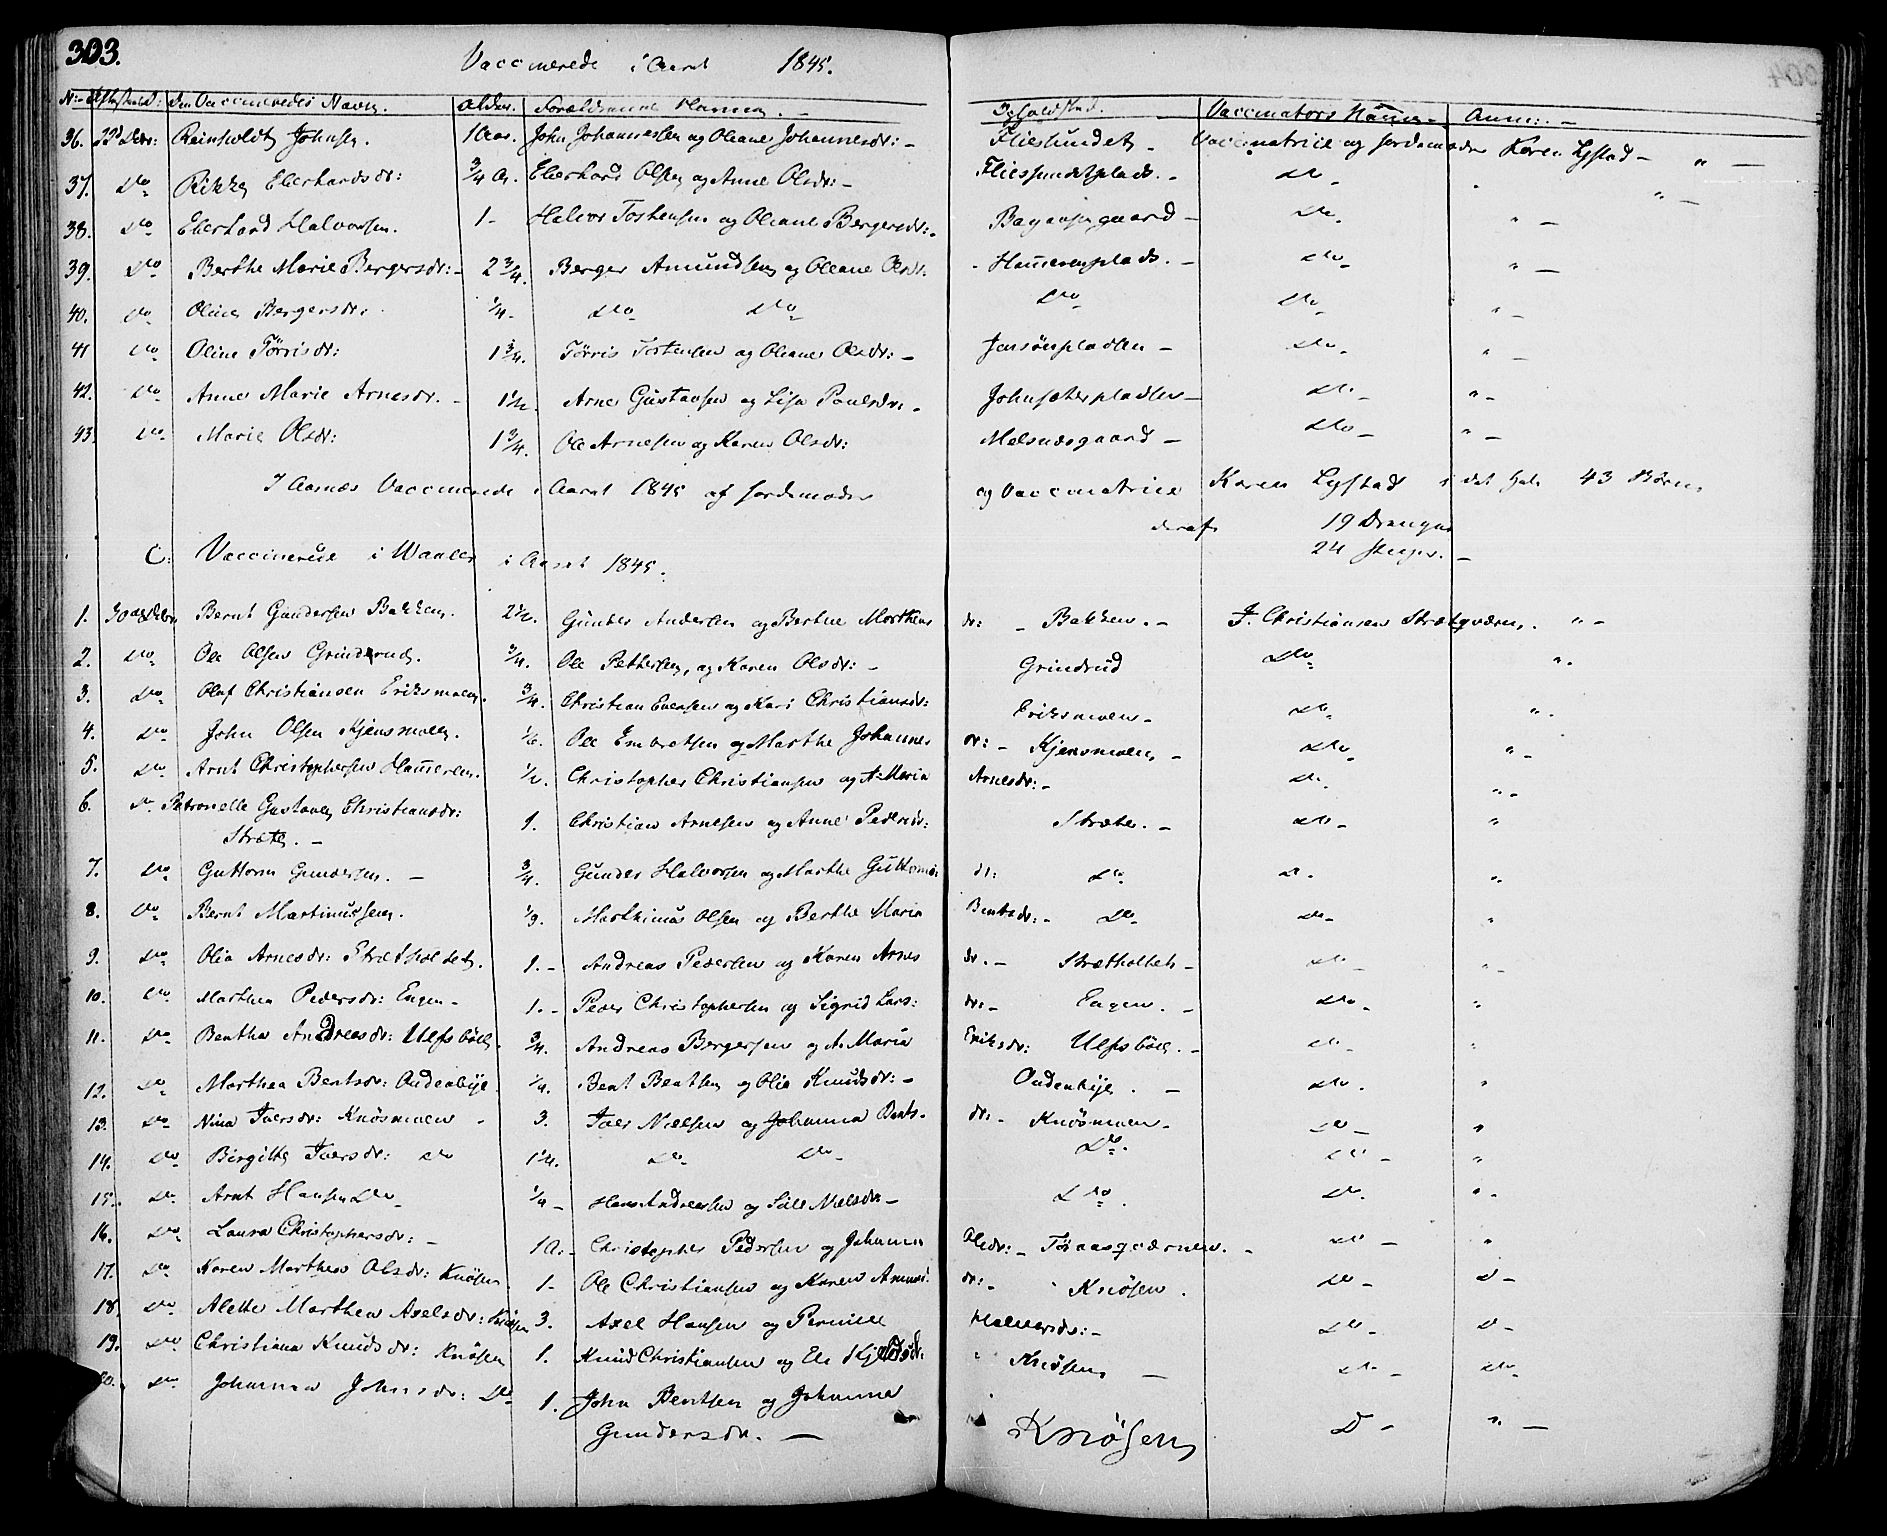 303.
Vaccinerede i Aaret 1845.
No Den Vaccineredes Navn. Alder. Forældrenes Navne. Opholdsted. Vaccinators Navn. Anm:
36. 22d Debr: Reinholdt Johnsen. 1 Aar. John Johannessen og Oleane Johannesdr: - Fliesundet - Vaccinatrice og Jordemoder Karen Lystad - " -
37. Do Rikke Eberhardsdr: 3/4 A. Eberhard Olsen og Anne Olsdr: - Fliesundetplads. - Do - " -
38. Do Eberhard Halvorsen. 1 - Halvor Tostensen og Oleane Bergersdr: - gaard - Do. " -
39. Do Berthe Marie Bergersdr: - 2 3/4. Berger Amundsen og Oleane Olsdr. - plads. - Do - " -
40. Do Oline Bergersdr. 1/4 - Do Do Do Do - " -
41 Do Oline Törrisdr: 1 3/4. Törris Tostensen og Oleane Olsdr: - - Do - " -
42. Do Anne Marie Arnesdr. - 1 1/2. Arne Gustavsen og Lisa Paulsdr. - Johnsæterpladsen - Do - " -
43. Do Marie Olsdr: 1 3/4. Ole Arnesen og Karen Olsdr: Melsnæsgaard - Do - " -
I Aasnæs Vaccinerede i Aaret 1845 af Jordemoder og Vaccinatrice Karen Lystad i det Hele 43 Börn,
deraf 19 Drenge
24 Piger. -
C: Vaccinerede i Waaler i Aaret 1845.
1. 30 Debr Bernt Gundersen Bakken. 2 1/2. Gunder Andersen og Berthe Marthins dr: - Bakken. - J. Christiansen Strætqværn. " -
2. Do Ole Olsen Grinderud. 3/4. Ole Pettersen, og Karen Olsdr: - Grindrud Do " .
3. Do Olaf Christiansen Eriksmoen. 3/4. Christian Evensen og Kari Christiansdr: Eriksmoen - Do - " .
4. Do John Olsen Kjensmoen. 1/2. Ole Embretsen og Marthe Johannes dr: - Kjensmoen, - Do - " -
5. Do Arnt Christophersen Hammeren. 1/2. Christopher Christiansen og A: Maria Arnesdr: - Do. " -
6. Do Petronelle Gustava Christiansdr:
Stræte. - 1. Christian Arnesen og Anne Pedersdr: Stræte. - Do - "
7. Do Guttorm Gundersen. - 3/4. Gunder Halvorsen og Marthe Guttorms dr: Do Do. "
8. Do Bernt Martinussen. 1/3. Marthinus Olsen og Berthe Maria Bentsdr: - Do Do - "
9. Do Olia Arnesdr: Strætholtet. 1. - Andreas Pedersen og Karen Arnes dr. - Strætholtet - Do - " -
10. Do Marthea Pedersdr: Engen - 1. - Peder Christophersen og Sigrid Lars: dr: - Engen. - Do - "
11. Do Benthe Andreasdr: Ulfsböl. 3/4. Andreas Bergersen og A. Maria Eriksdr: Ulfsböl. - Do - "
12. Do Marthea Bentsdr: Oudenbye. 1/4. Bent Bentsen og Olia Knudsdr: - Oudenbye. - Do. "
13. Do Nina Iversdr: Knösmoen - 3. Iver Nielsen og Johanna Bents. dr: - Knösmoen - Do - "
14. Do Birgitte Iversdr: Do 1 1/4. Do Do Do. Do - "
15. Do Arnt Hansen Do 1/4 - Hans Andreasen og Sille Nielsdr - Do. Do. " -
16. Do Laura Christophersdr: - 1 A. - Christopher Pedersen og Johanna Olsdr: - - Do - "
17. Do Karen Marthea Olsdr: Knösen 1 - Ole Christiansen og Karen Amund. dr: - Knösen. Do - D -
18. Do Alette Marthea Axelsdr: Knösen 3. Axel Hansen og Pernille Halversdr: - Do - D -
19. Do Christiana Knudsdr: Knösen 1. Knud Christiansen og Eli Kjeldsdr: Knösen - Do - Do -
20. Do Johanna Johnsdr: Do 1. John Bentsen og Johanna
Gundersdr. - Knösen D - " -